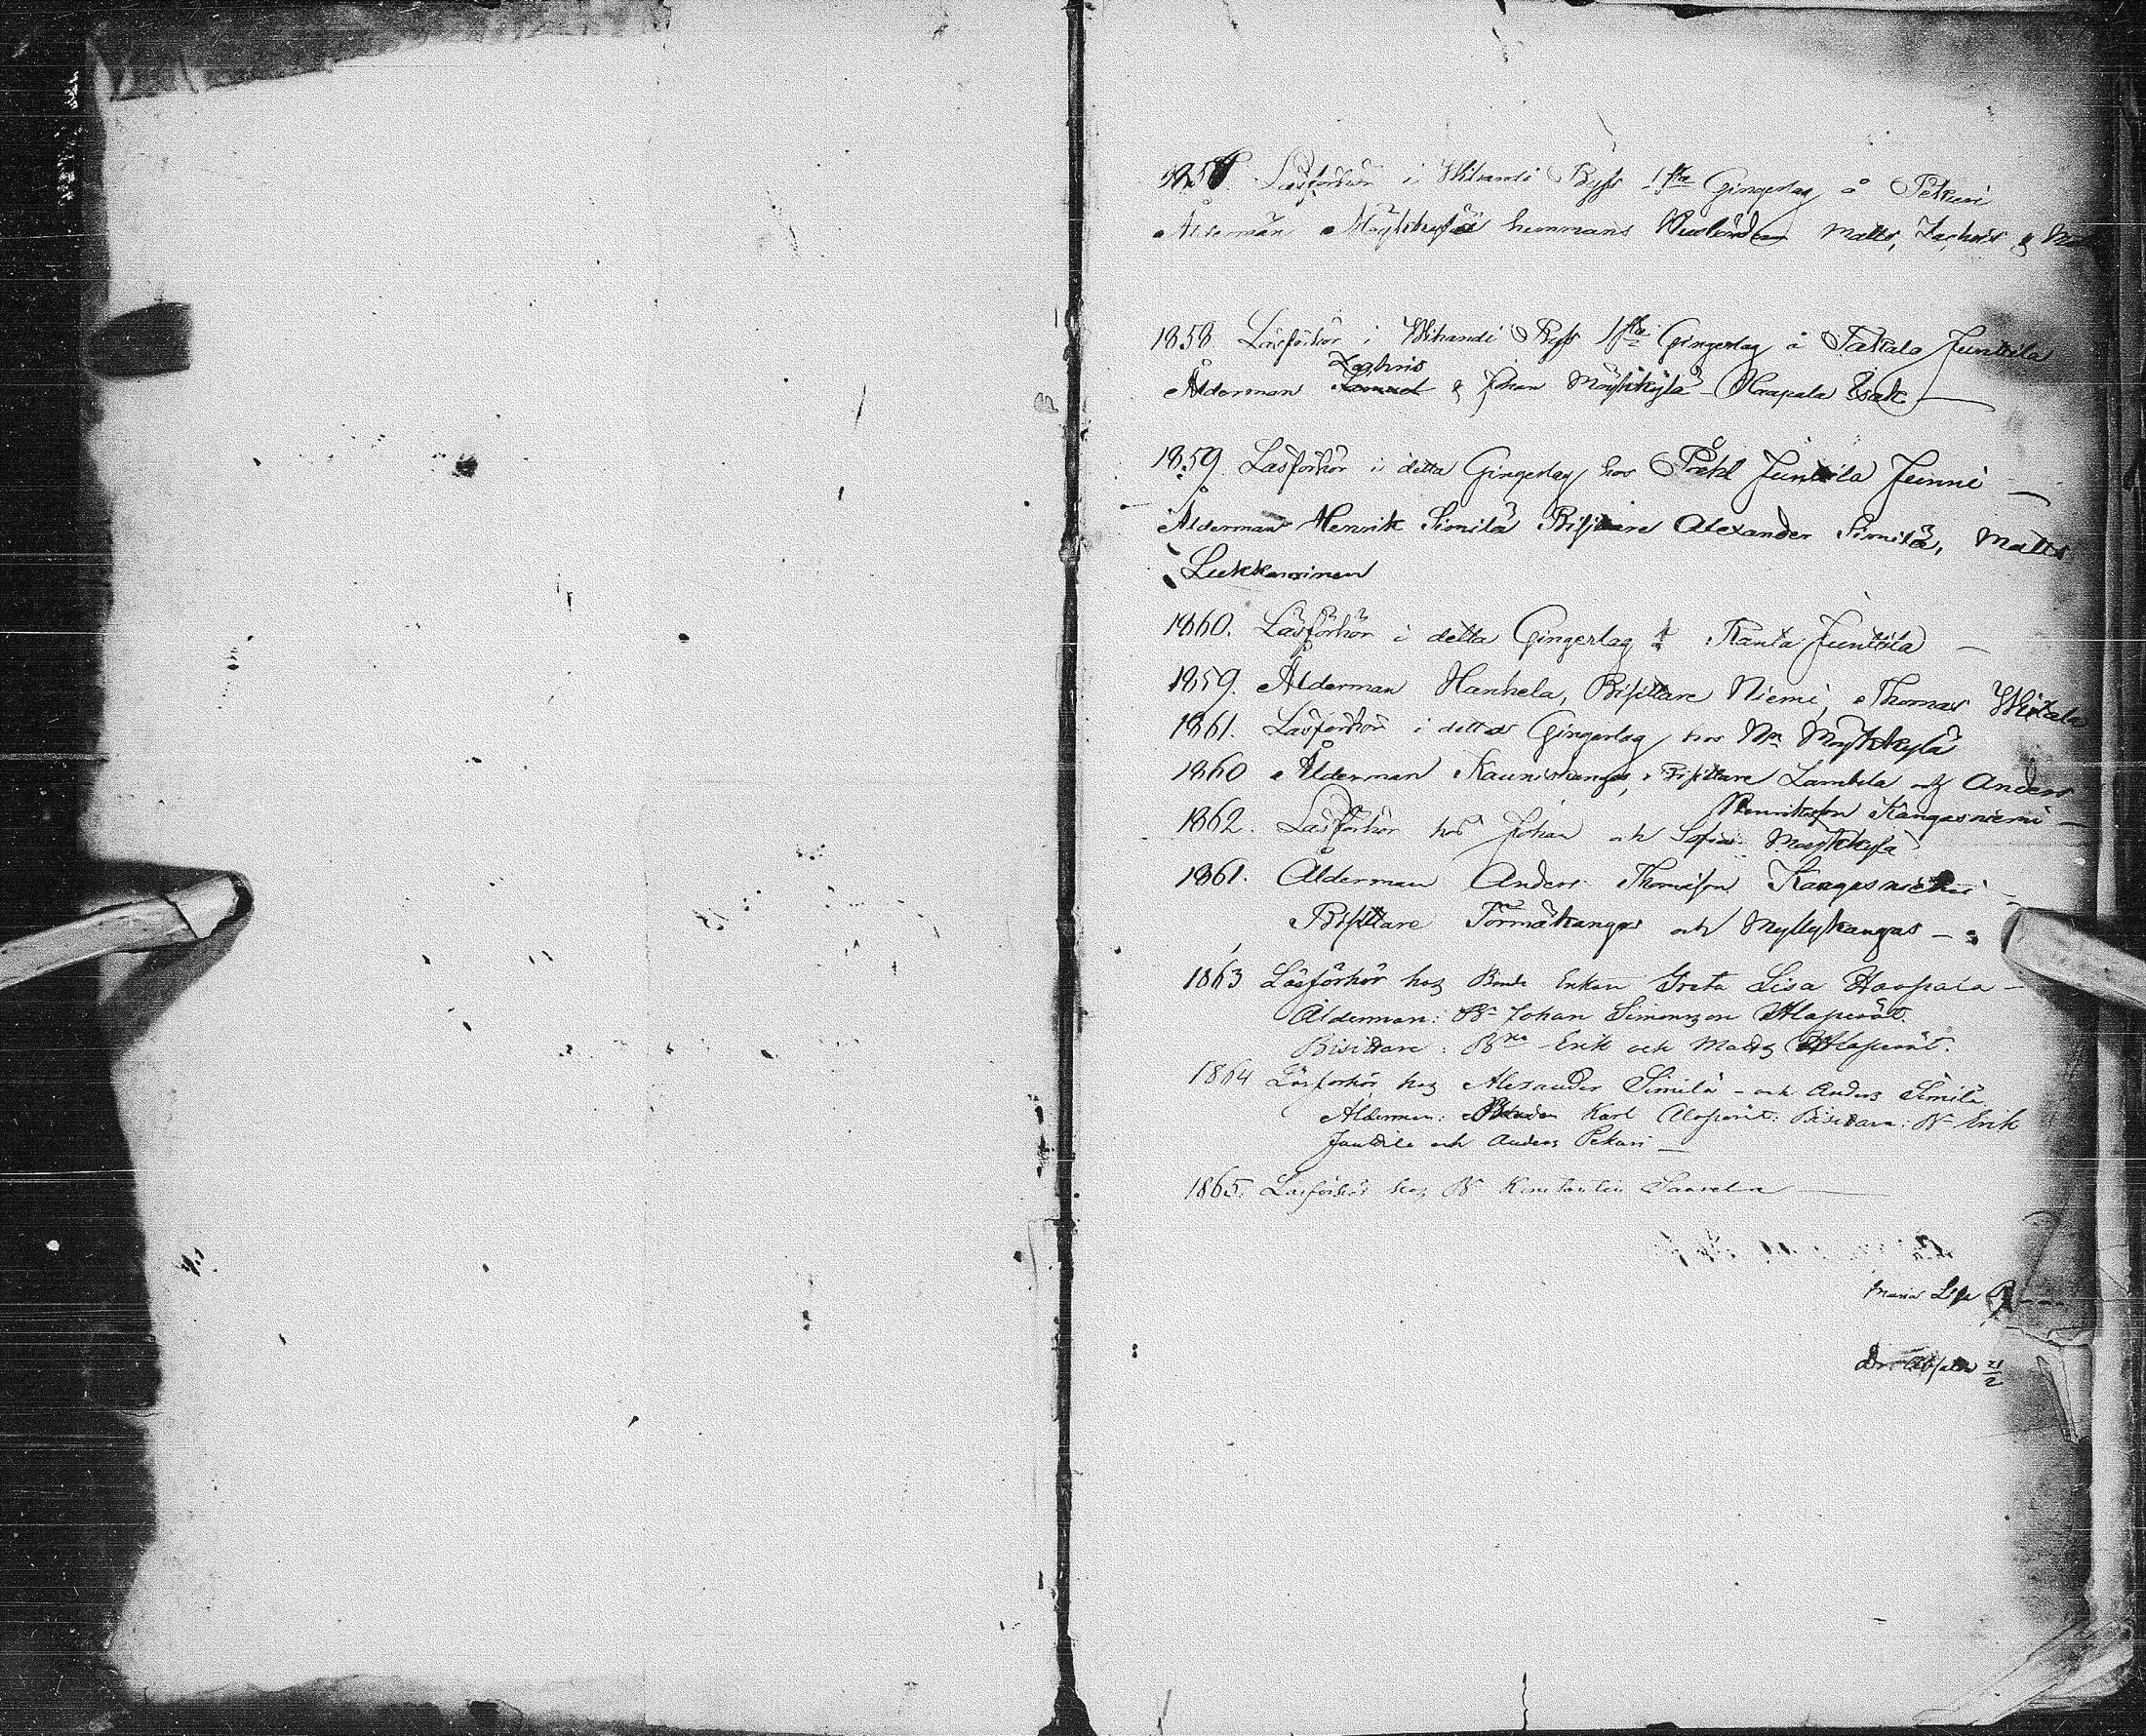 1857. Läsförhör i Wihandi Byss 1sta Gingerlag å Pekuri
Ålderman Möykkylä hemmans Matts, Zachris &
1858 Läsförhör i Wihandi Byss 1sta Gingerlag å Takalo Junttila
Zachris
Ålderman & Johan Möykkylä - Haapala Esak
1859. Läsförhör i detta Gingerlag hos Junttila
Ålderman Henrik Similä Bisittare Alexander Similä, Matts
Lukkaroinen
1860. Läsförhör i detta Gingerlag å Ranta Junttila
1859. Ålderman Hanhela, Bisittare Niemi, Thomas
1861. Läsförhör i detta Gingerlag hos Nm Möykkylä
1860 Ålderman Kauniskangas, Bisittare Lambela och Anders
Henriksson Kangasniemi
1862. Läsförhör hos Johan och Sofia Möykkylä
1861. Ålderman Anders Thomasson Kangasniemi
Bisittare Törmäkangas och Myllykangas
1863 Läsförhör hos Bonde Enkan Greta Lisa Haapala
Ålderman: Bn Johan Simonsson Alaperät.
Bisittare: Bdr Erik och Matts Alaperät.
1864 Läsförhör hos Alexander Similä - och Anders Similä
Ålderman: Bonden Karl Alaperät: Bisittare: Bn Erik
Junttila och Anders Pekuri
1865. Läsförhör hos Bn Konstantin Saarela
Maria Lisa